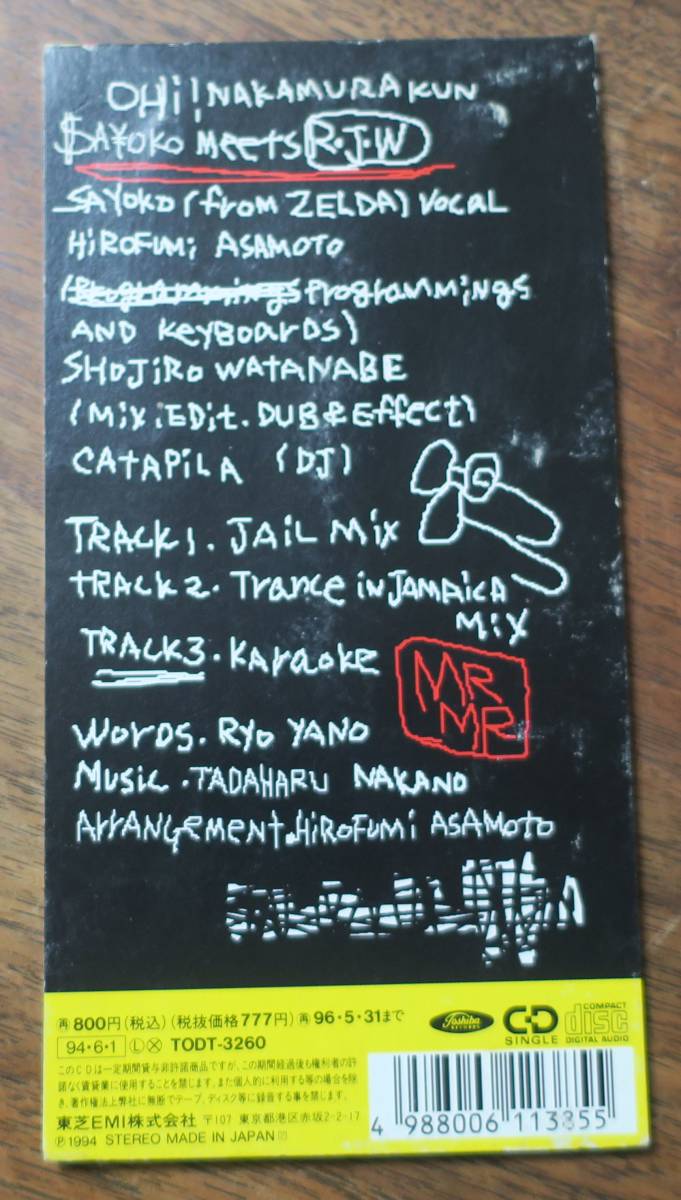 OHi! NAKAMURA KUN
$A¥OKO Meets R·J·W
SAYOKO (from ZELDA) VOCAL
HiROFUMi ASAMOTO
(Programmings Programmings
AND KeyBoards)
SHOJiRO WATANABE
(Mix.EDit.DUB & Effect)
CATAPiLA (DJ)
TRACK1. JAiL Mix
tRACK2. Trance iN JAMAiCA
MiX
TRACK3. Karaoke
MR
MR
Words. Ryo YANO
Music. TADAHARU NAKANO
Arrangement. HiROFUMi ASAMOTO
再800円(税込)(税抜価格777円)再96・5・31まで
94・6・1 Ⓛ Ⓧ TODT-3260
このCDは一定期間貸与非許諾商品ですが、この期間経過後も権利者の許
諾なく賃貸業に使用することを禁じます。また個人的に利用する等の場合を除
き、著作権法上弊社に無断でテープ、ディスク等に録音する事を禁じます。
東芝EMI株式会社 〒107 東京都港区赤坂2-2-17
Ⓟ1994 STEREO MADE IN JAPAN
Toshiba
RECORDS
CD
SINGLE
COMPACT
disc
DIGITAL AUDIO
4 988006 113855